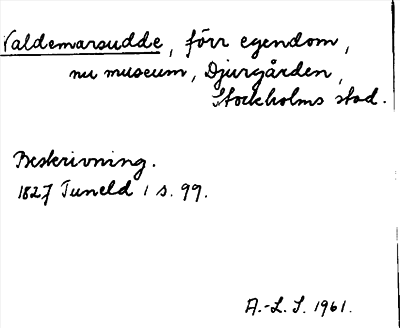 Valdemarsudde, förr egendom,
nu museum, Djurgården,
Stockholms stad.
Beskrivning.
1827 Tuneld 1 s. 99.
A.-L. S. 1961.